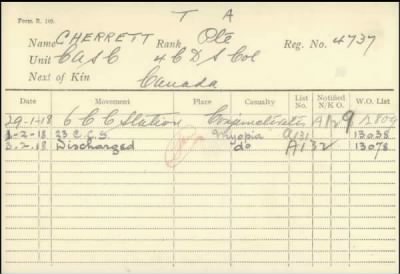 T A
Form B. 103.
Name CHERRETT Rank Pte Reg. No. 4737
Unit CASC 4 C D S Col
Next of Kin Canada
Date Movement Place Casualty List No. Notified N/K O. W.O. List
29-1-18 6 C C Station Conjunctivitis A129 12809
1-2-18 23 C.C.S. Myopia A131 13038
3.2.18 Discharged do A132 13078